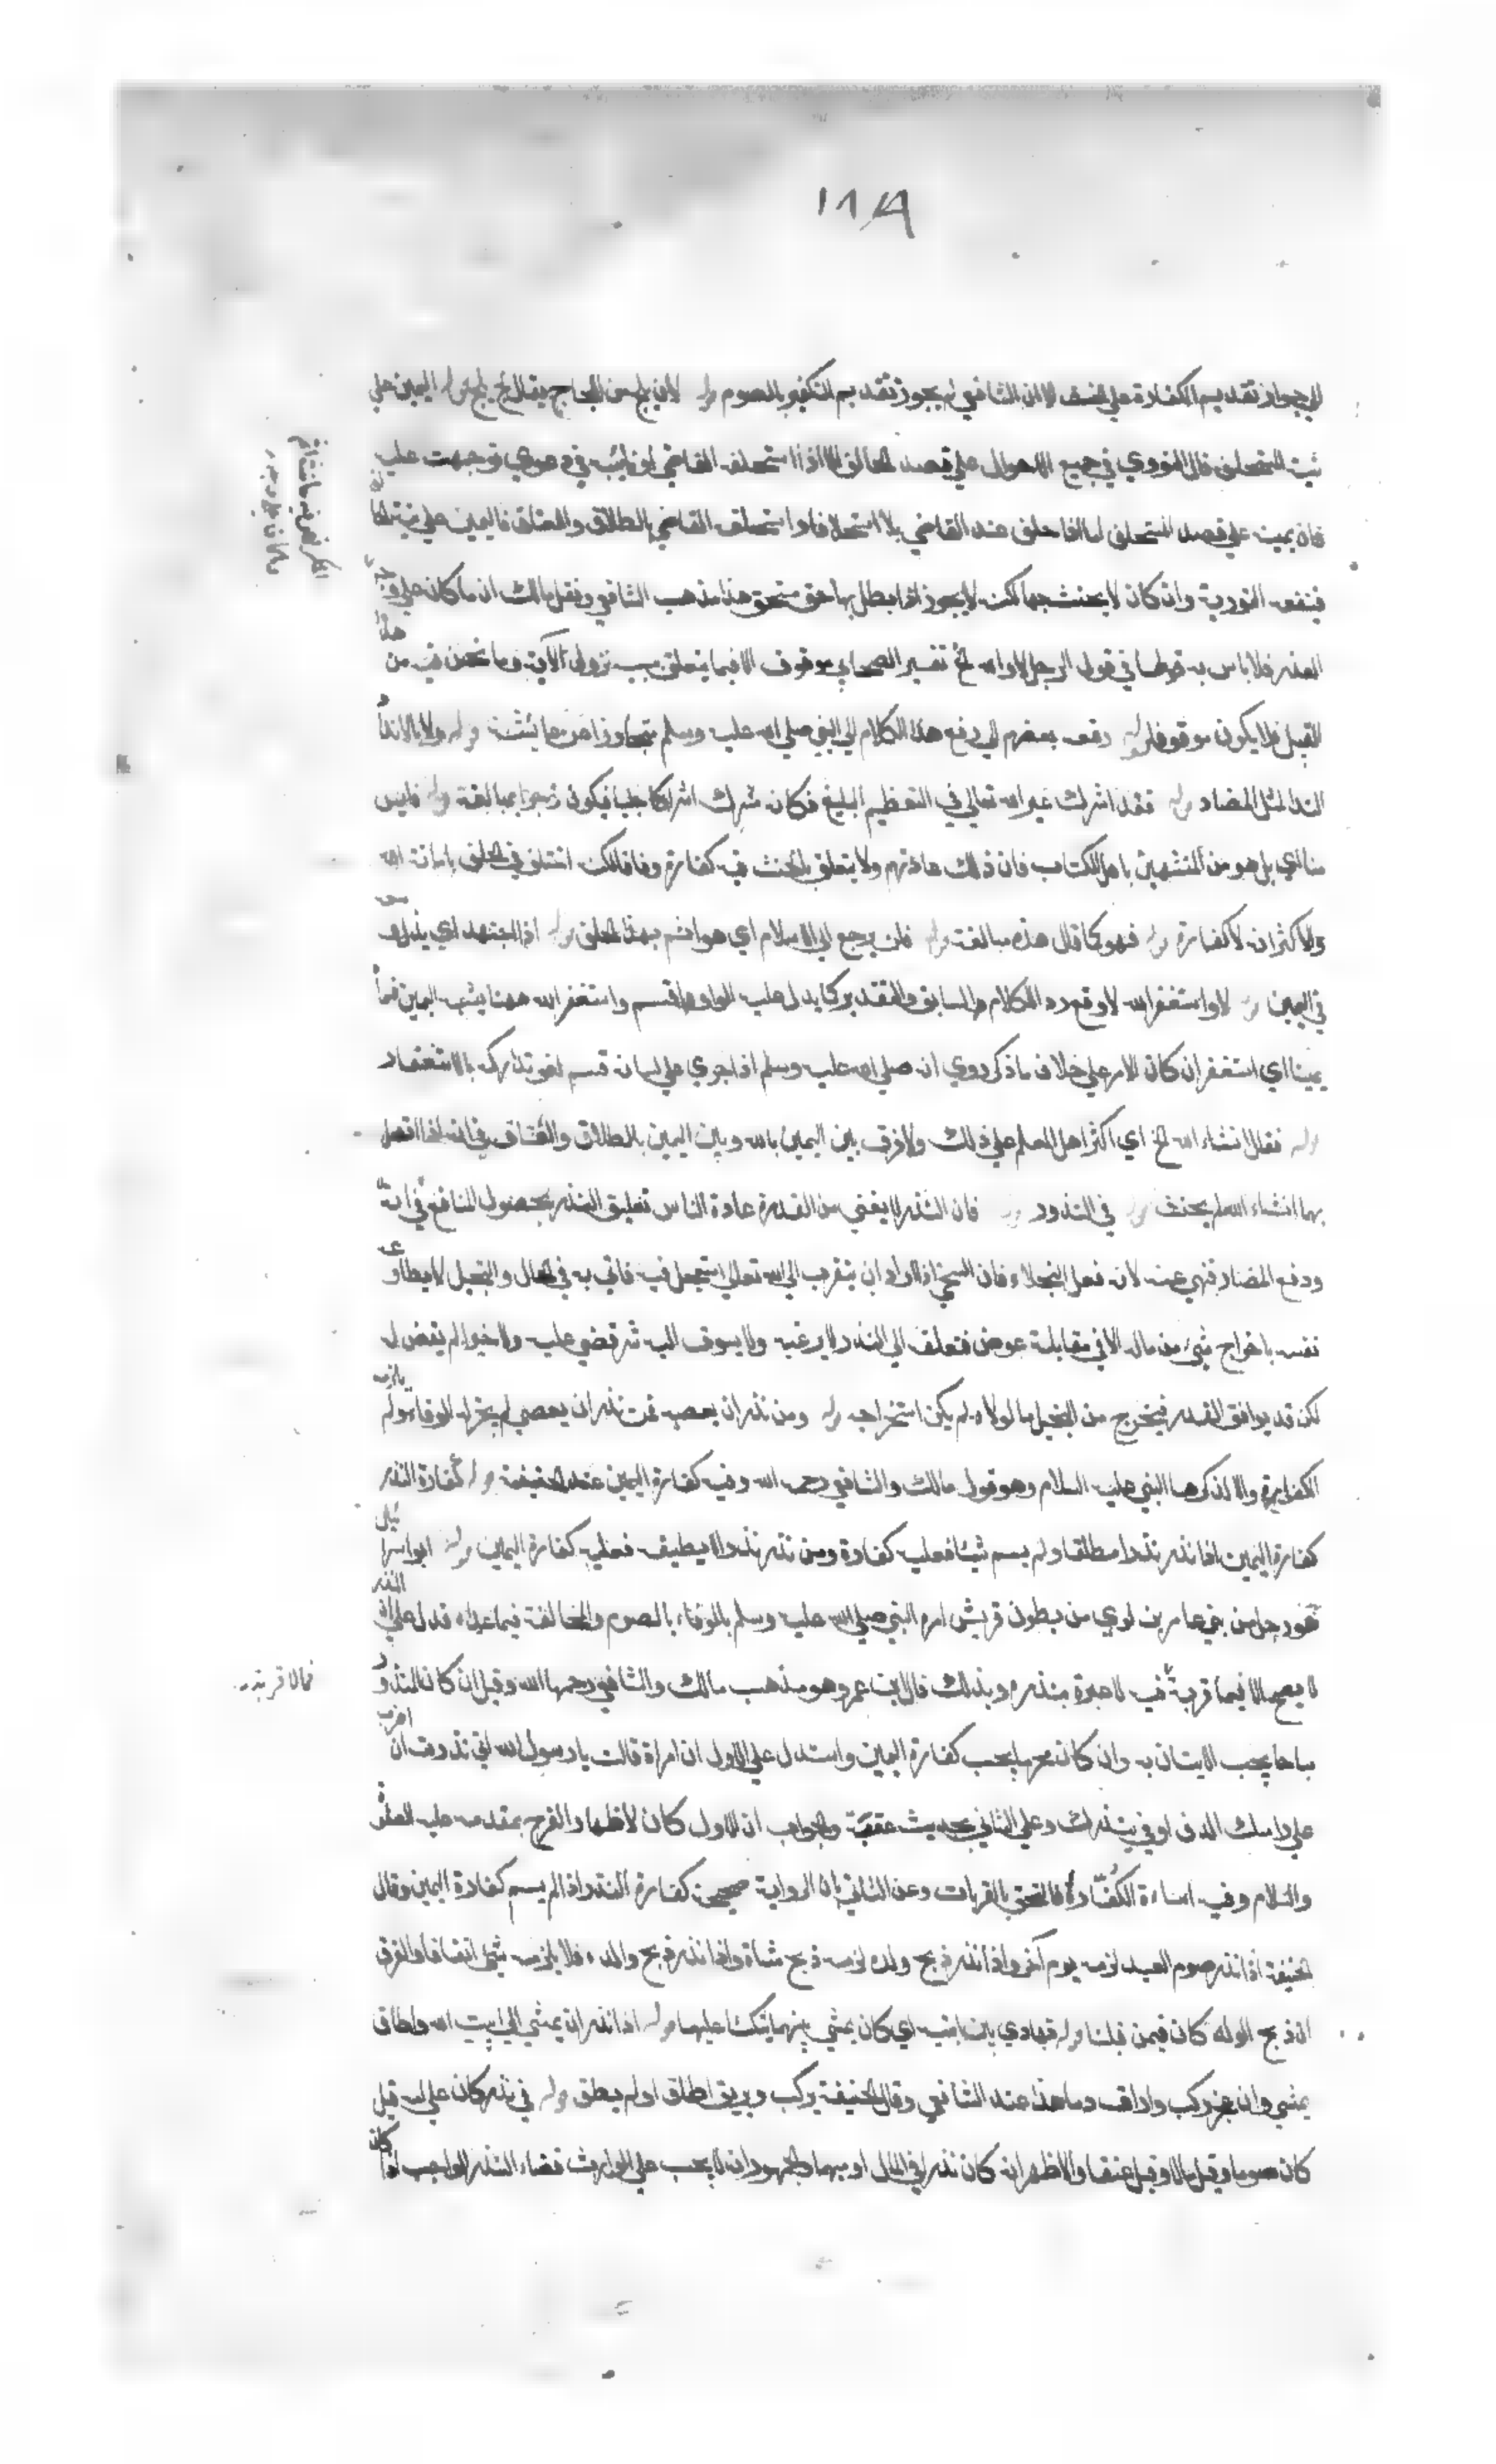 ١٨٩
الي جواز تقديم الكفارة علي الحنث الا ان الشافعي لم يجوز تقديم التكفير بالصوم قوله لان يلج من اللجاج يقال لج يلج قوله اليمين علي
نية المستحلف قال النووي في جميع الاحوال علي قصد الحالف الا اذا استحلف القاضي او نائبه في دعوي توجهت عليه
فان يمينه علي قصد المستحلف اما اذا حلف عند القاضي بلا استحلافه او استحلف القاضي بالطلاق والعتاق فاليمين علي نيته
فينفعه التورية وان كان لا يحنث بها لكنه لا يجوز اذا يبطل بها حق مستحق هذا مذهب الشافعي ونقل مالك ان ما كان علي وجه
العذر فلا باس به قولها في قول الرجل لا والله الخ تفسير الصحابي موقوف الا فيما يتعلق بسبب نزول الآية وما نحن فيه من هذا
القبيل فلا يكون موقوفا قوله رفعه بعضهم الي رفع هذا الكلام الي النبي صلي الله عليه وسلم متجاوزا عن عائشة قوله ولا بالانداد
الند المثل المضاد قوله فقد اشرك غير الله تعالي في التعظيم البليغ فكانه شرك اشراكا جليا فيكون زجرا مبالغة قوله فليس
منا اي بل هو من المتشبهين باهل الكتاب فان ذلك عادتهم ولا يتعلق بالحنث فيه كفارة وفاقا لكنه اختلف في الحلف بامانة الله
والاكثر انه لا كفارة قوله فهو كما قال هذه مبالغة قوله فلن يرجع الي الاسلام اي هو اثم بهذا الحلف قوله اذا اجتهد اي بذل وسعه
في اليمين قوله لا واستغفر الله لا وقع رد الكلام السابق والتقدير كما يدل عليه الواو لا اقسم واستغفر الله ههنا يشبه اليمين فسماه
يمينا اي استغفر ان كان الامر علي خلاف ما ذكر روي انه صلي الله عليه وسلم اذا جري علي لسانه قسم لغو تداركه بالاستغفار
قوله فقال ان شاء الله الخ اي اكثر اهل العلم علي ذلك ولا فرق بين اليمين بالله وبين اليمين بالطلاق والعتاق في انه اذا اتصل
بها ان شاء الله لم يحنث قوله في النذور قوله فان النذر لا يغني من القدر عادة الناس تعليق النذر بحصول المنافع
ودفع المضار فنهي عنه لانه فعل البخلاء فان السخي اذا اراد ان يتقرب الي الله تعالي استعجل فيه فاتي به في الحال والبخيل لا يطاوعه
نفسه باخراج شيء من ماله الا في مقابلة عوض فتعلقه الي النذر لا يرغبه ولا يسوق اليه شر قضي عليه ولا خيرا لم يقض له
لكن قد يوافق القدر فيخرج من البخيل ما لولاه لم يكن استخراجه قوله ومن نذر ان يعصيه فمن نذر ان يعصي لم يجز له الوفاء ولم يلزمه
الكفارة والا لذكرها النبي عليه السلام وهو قول مالك والشافعي رحمه الله وفيه كفارة اليمين عند ابي حنيفة قوله كفارة النذر
كفارة اليمين اذا نذر نذرا مطلقا ولم يسم شيئا فعليه كفارة ومن نذر نذرا لا يطيقه فعليه كفارة اليمين قوله ابو اسرائيل
هو رجل من بني عامر بن لوي من بطون قريش امره النبي صلي الله عليه وسلم بالوفاء بالصوم والمخالفة فيما عداه فدل علي ان النذر
لا يصح الا فيما قربة فيه لا عبرة بنذره وبذلك قال ابن عمر وهو مذهب مالك والشافعي رحمهما الله وقيل ان كان المنذور
مباحا يجب الاتيان به وان كان محرما يجب كفارة اليمين واستدل علي الاول ان امراة قالت يا رسول الله اني نذرت ان اضرب
علي راسك الدف اوفي بنذرك وعلي الثاني بحديث عقبة والجواب ان الاول كان لاظهار الفرح بمقدمه عليه الصلوة
والسلام وفيه اساءة الكفار فالتحق بالقربات وعن الثاني ان الرواية صحيحة كفارة النذر اذا لم يسم كفارة اليمين وقال
ابو حنيفة اذا نذر صوم العيد لزمه يوم آخر واذا نذر ذبح ولده لزمه ذبح شاة واذا نذر ذبح والده فلا يلزمه شيء اتفاقا والفرق
ان ذبح الولد كان فيمن قبلنا قوله يهادي بين ابنيه اي كان يمشي بينهما متكئا عليهما قوله اذا نذر ان يمشي الي بيت الله واطاق
يمشي وان عجز ركب واراق دما هذا عند الشافعي وقال ابو حنيفة يركب ويريق اطلق او لم يطق قوله في نذر كان علي امه قيل
كان صوما وقيل مالا وقيل عتقا والاظهر انه كان نذر في المال او مبهما والجمهور انه لا يجب علي الوارث قضاء النذر الواجب اذا كان